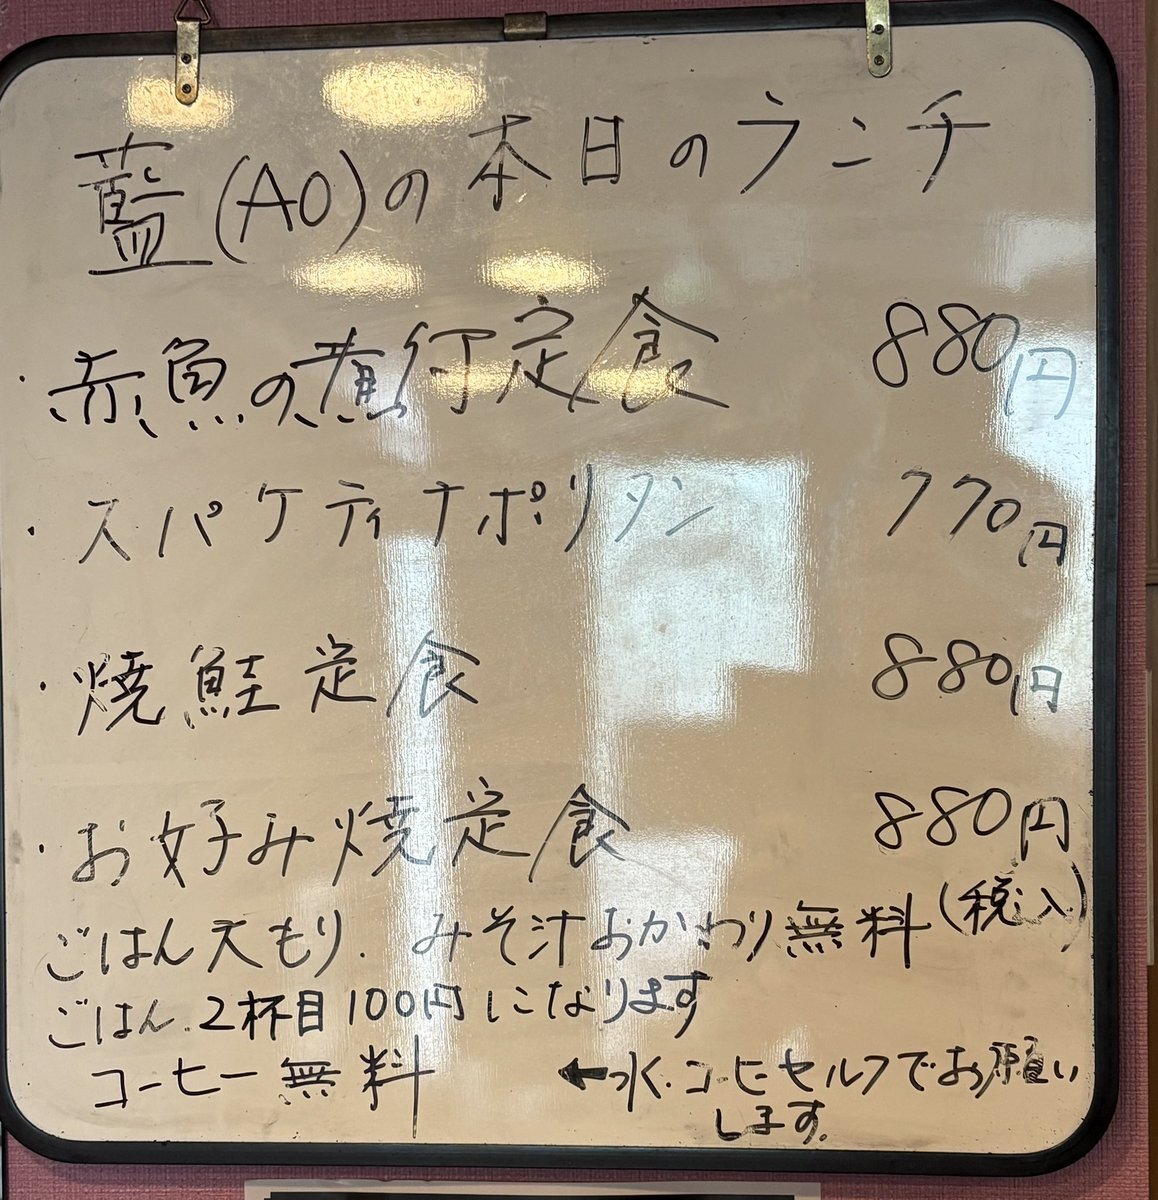 藍(AO)の本日のランチ
・赤魚の煮付定食 880円
・スパゲティナポリタン 770円
・焼鮭定食 880円
・お好み焼定食 880円
(税込)
ごはん大もり.みそ汁おかわり無料
ごはん.2杯目100円になります
コーヒー無料 ←水.コーヒーセルフでお願い
します.